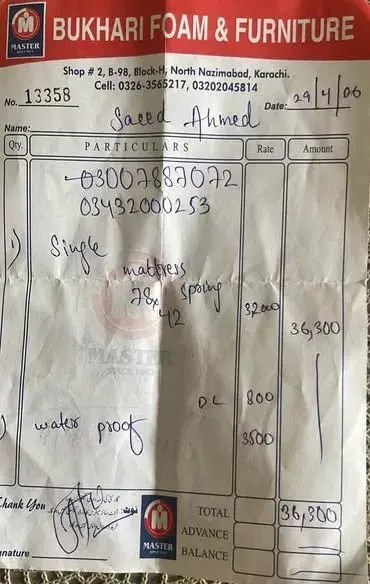 MASTER
BUKHARI FOAM & FURNITURE
Shop # 2, B-98, Block-H, North Nazimabad, Karachi.
Cell: 0326-3565217, 03202045814
No. 13358
Date: 29/4/06
Name: Saeed Ahmed
Qty. PARTICULARS Rate Amount
03007887072
03432000253
1) Single
mattress
78x spring
42 32000
36,300
MASTER
DL 800
water proof 3500
Thank You
TOTAL 36,300
ADVANCE
BALANCE
MASTER